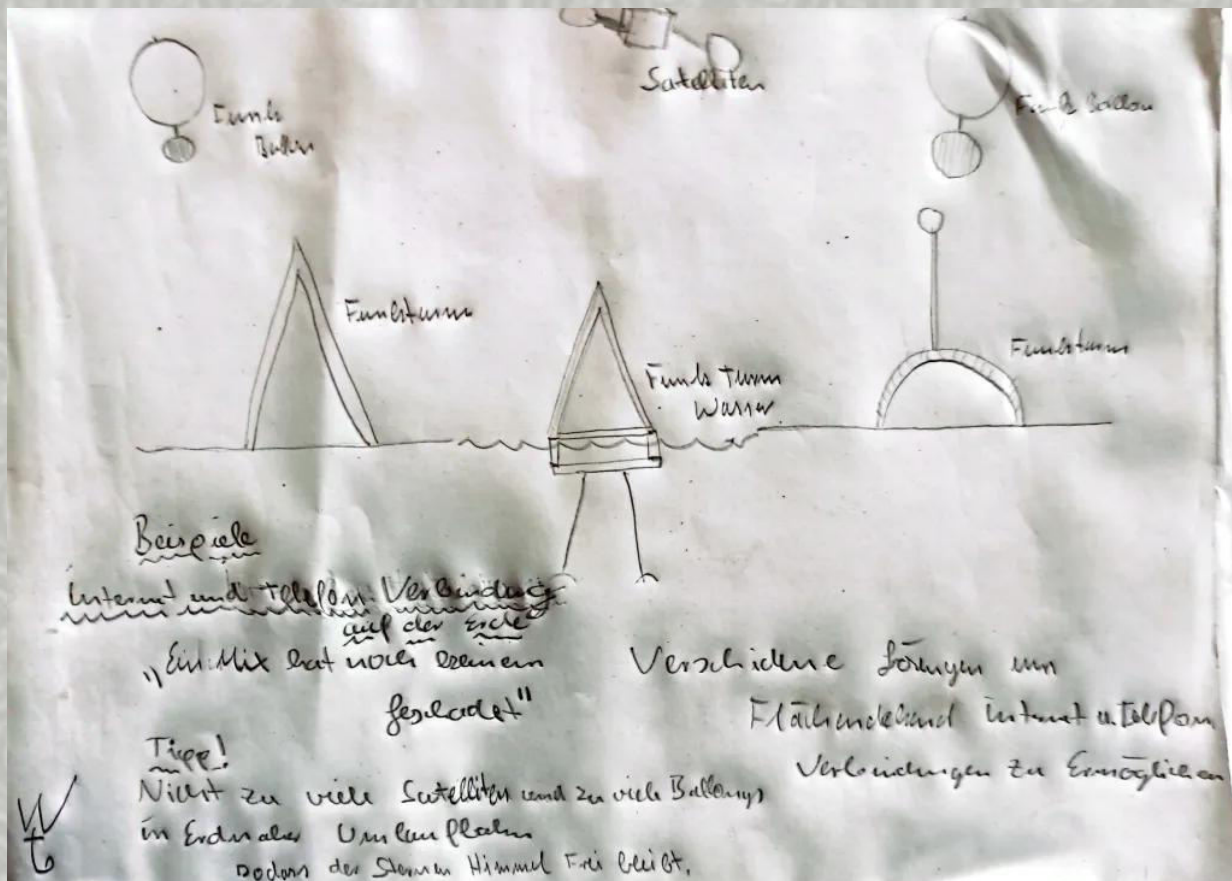 Satelliten
Funk
Ballon
Funk Ballon
Funkturm
Funk Turm
Wasser
Funkturm
Beispiele
Internet und Telefon Verbindung
auf der Erde
"Ein Mix hat noch keinem
geschadet"
Verschidene Lösungen um
Flächendekend internet u. Telefon
Verbindungen zu Ermöglichen
Tipp!
Nicht zu viele Satelliten und zu viele Ballongs
in Erdnaher Umlaufbahn
Sodass der Sternen Himmel Frei bleibt.